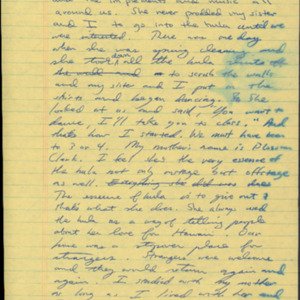 and music all
around us. She never my sister
and I to go into the hula until we
were interested. There was one day
when she was spring cleaning and
she took down all the hula skirts off
the wall and to scrub the walls
and my sister and I put on the
skirts and began dancing. She
looked at us and said "You want to
dance I'll take you to class." And
thats how I started. We must have been
3 or 4. My mother's name is
Clark. I feel she's the very essence of
the hula not only onstage but offstage
as well. Everything she did was
The essence of hula is to give out &
thats what she does. She always used
the hula as a way of telling people
about her love for Hawaii. Our
home was a stopover place for
strangers. Strangers were welcome
and they would return again and
again. I studied with my mother
as long as I lived with her and